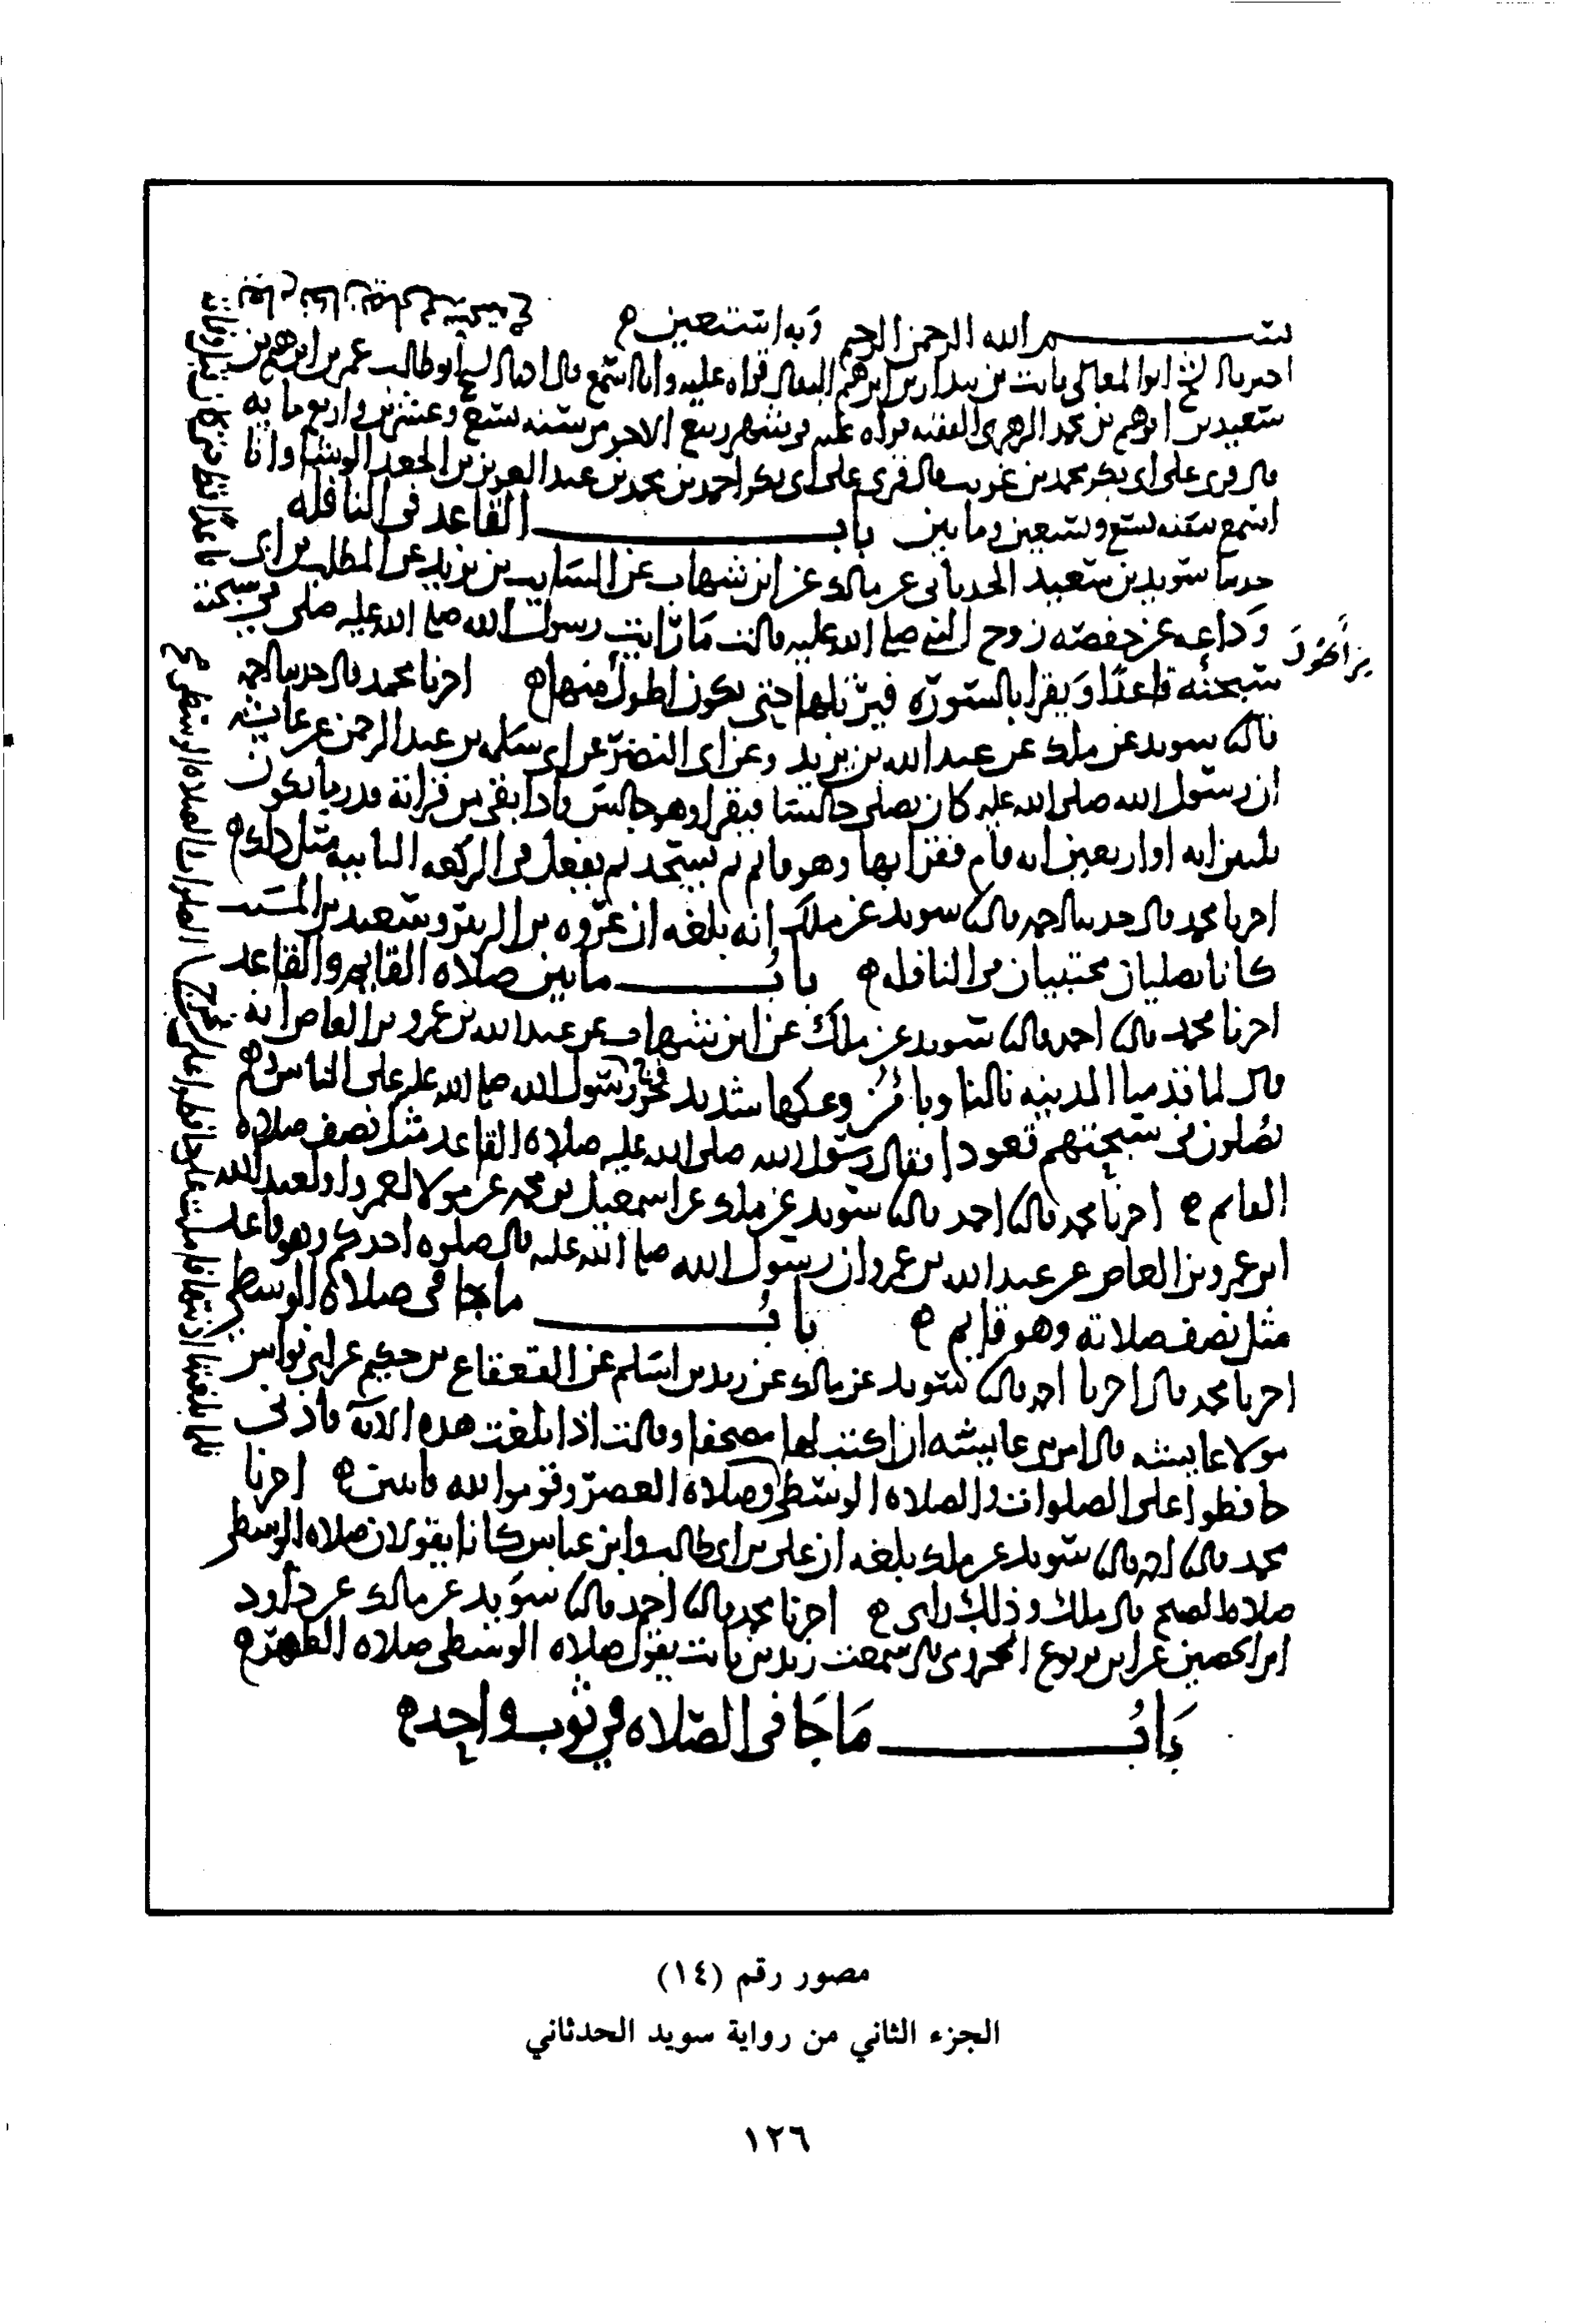 بسم الله الرحمن الرحيم وبه استعين ه
اخبرنا الشيخ ابوا المعالي ثابت بن بندار بن ابرهيم البقال قراه عليه وانا اسمع قال اخبرنا ابو طالب عمر بن ابرهيم بن
سعيد بن ابرهيم بن محمد الزهري الفقيه قراه عليه في شهر ربيع الاخر من سنه تسع وعشرين واربع مايه
قال قرى على ابي بكر محمد بن غريب قال قرى على ابي بكر احمد بن محمد بن عبد العزيز بن الجعد الوشا وانا
اسمع سنه تسع وتسعين ومايتين باب القاعد في النافله
حدثنا سويد بن سعيد الحدثاني عن مالك عن ابن شهاب عن السايب بن يزيد عن المطلب بن ابي
وداعه عن حفصه زوج النبي صلى الله عليه قالت ما رايت رسول الله صلى الله عليه صلى في سبحته
سبحته قاعدًا ويقرا بالسوره فيرتلها حتى يكون اطول منها ه اخبرنا محمد قال حدثنا احمد
قال سويد عن ملك عن عبد الله بن يزيد وعن ابي النضر عن ابي سلمه بن عبد الرحمن عن عايشه
ان رسول الله صلى الله عليه كان يصلي جالسا فيقرا وهو جالس فاذا بقي من قراته قدر ما يكون
ثلثين ايه او اربعين ايه قام فقرا بها وهو قايم ثم يسجد ثم يفعل في الركعه الثانيه مثل ذلك ه
اخبرنا محمد قال حدثنا احمد قال سويد عن ملك انه بلغه ان عروه بن الزبير وسعيد بن المسيب
كانا يصليان محتبيان من النافله ه باب ما بين صلاه القايم والقاعد
اخبرنا محمد قال احمد قال سويد عن ملك عن ابن شهاب عن عبد الله بن عمرو بن العاص انه
قال لما قدمنا المدينه نالنا وبا من وعكها شديد فخرج رسول الله صلى الله عليه على الناس وهم
يصلون في سبحتهم قعودا فقال رسول الله صلى الله عليه صلاه القاعد مثل نصف صلاه
القايم ه اخبرنا محمد قال احمد قال سويد عن ملك عن اسمعيل بن محمد عن مولا لعمرو او لعبد الله
ابن عمرو بن العاص عن عبد الله بن عمرو ان رسول الله صلى الله عليه قال صلوه احدكم وهو قاعد
مثل نصف صلاته وهو قايم ه باب ما جا في صلاه الوسطى
اخبرنا محمد قال اخبرنا احمد قال سويد عن مالك عن زيد بن اسلم عن القعقاع بن حكيم عن ابي يونس
مولا عايشه قال امرتني عايشه ان اكتب لها مصحفا وقالت اذا بلغت هذه الايه فاذني
حافظوا على الصلوات والصلاه الوسطى وصلاه العصر وقوموا لله قانتين ه اخبرنا
محمد قال احمد قال سويد عن ملك بلغه ان علي بن ابي طالب وابن عباس كانا يقولان صلاه الوسطى
صلاه الصبح قال ملك وذلك رايي ه اخبرنا محمد قال احمد قال سويد عن مالك عن داود
ابن الحصين عن ابن يربوع المخزومي قال سمعت زيد بن ثابت يقول صلاه الوسطى صلاه الظهر ه
باب ما جا في الصلاه في ثوب واحد ه
مصور رقم (١٤)
الجزء الثاني من رواية سويد الحدثاني
١٢٦